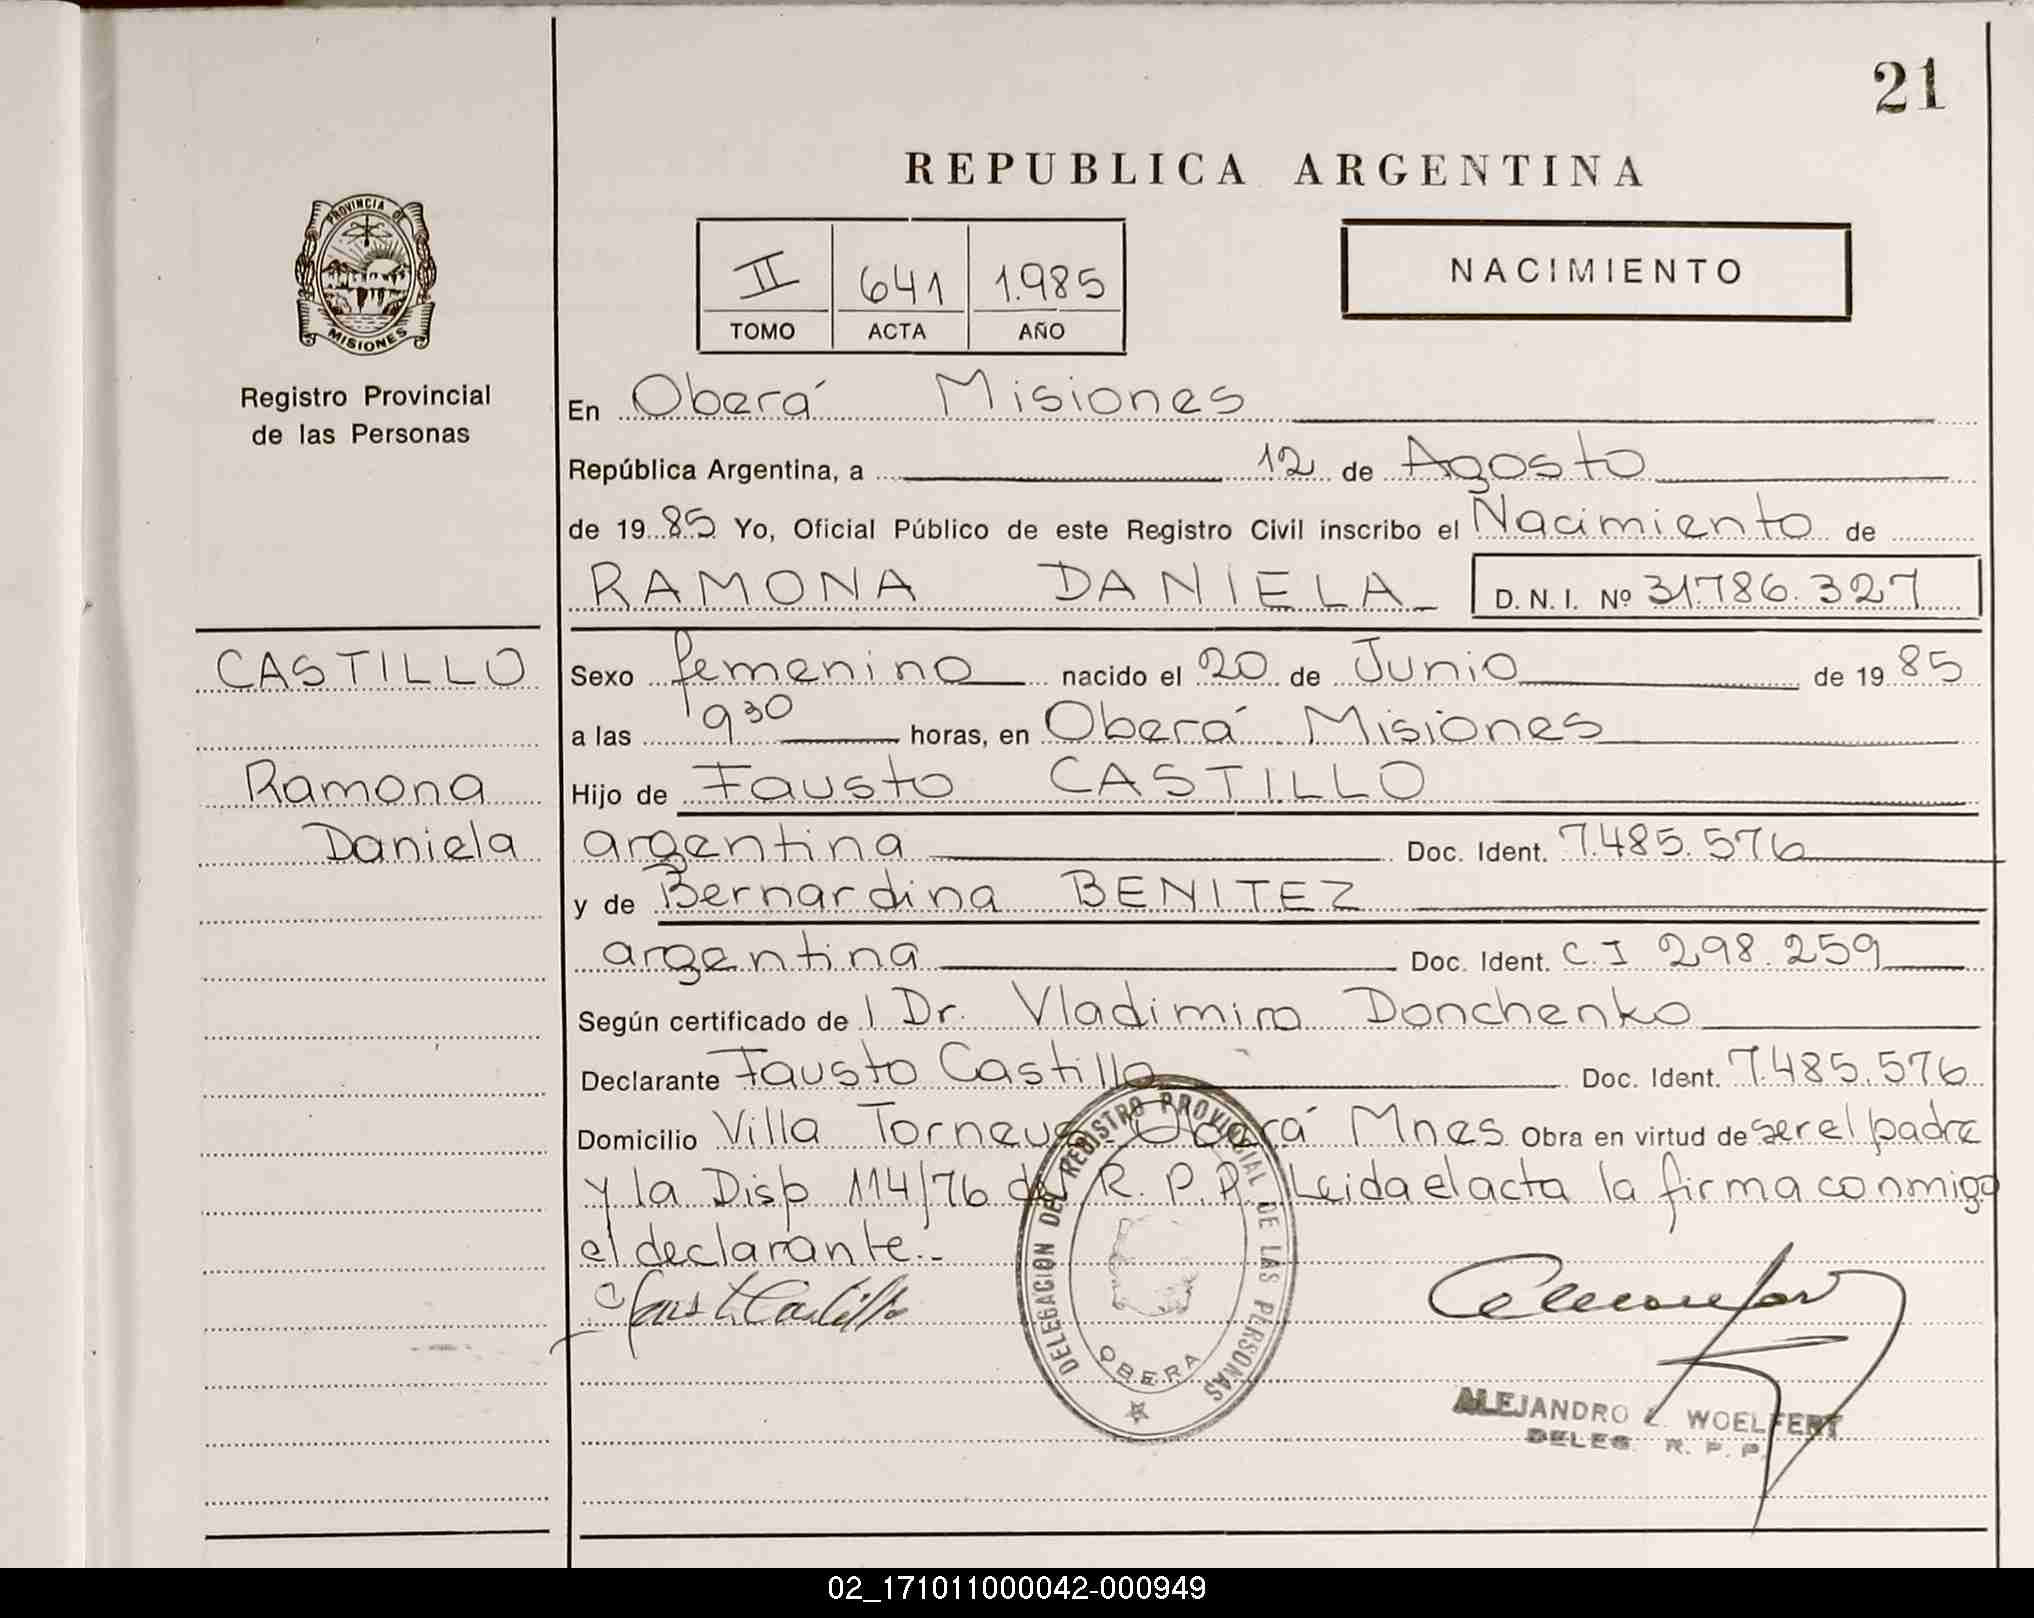 21
REPUBLICA ARGENTINA
PROVINCIA DE
MISIONES
Registro Provincial
de las Personas
II 641 1.985
TOMO ACTA AÑO
NACIMIENTO
En Oberá Misiones
República Argentina, a 12 de Agosto
de 1985 Yo, Oficial Público de este Registro Civil inscribo el Nacimiento de
RAMONA DANIELA D. N. I. Nº 31.786.327
CASTILLO
Sexo femenino nacido el 20 de Junio de 1985
a las 9 30 horas, en Oberá Misiones
Ramona
Hijo de Fausto CASTILLO
Daniela
argentina Doc. Ident. 7.485.576
y de Bernardina BENITEZ
argentina Doc. Ident. C.I 298.259
Según certificado de l Dr. Vladimiro Donchenko
Declarante Fausto Castillo Doc. Ident. 7.485.576
Domicilio Villa Oberá Mnes. Obra en virtud de ser el padre
y la Disp 114/76 del R. P. P. Leida el acta la firma conmigo
el declarante.-
Faust Castillo
DELEGACION DEL REGISTRO PROVINCIAL DE LAS PERSONAS
OBERA
ALEJANDRO L. WOELFERT
DELEG. R. P. P.
02_171011000042-000949